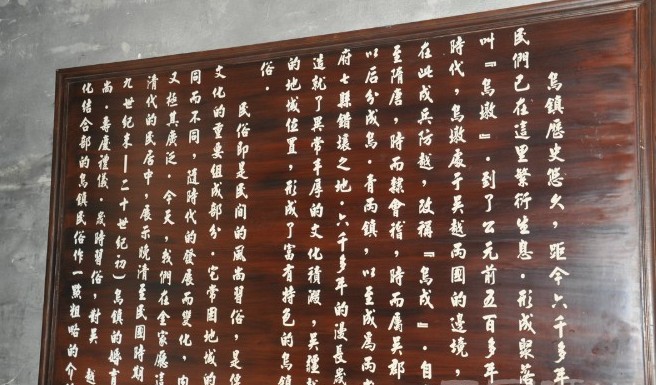 烏鎮歷史悠久，距今六千多年
民們已在這里繁衍生息．形成聚落
叫『烏墩』．到了公元前五百多年
時代，烏墩處于吳越兩國的邊境，
在此戍兵防越，改稱『烏戍』．自
至隋唐，時而隸會稽，時而屬吳郡
以后分成烏．青兩鎮，以至成為兩
府七縣錯壤之地．六千多年的漫長歲
造就了異常丰厚的文化積澱，吳疆越
的地域位置，形成了富有特色的烏鎮
俗．
民俗即是民間的風尚習俗，是
文化的重要組成部分．它常因地域的
同而不同，隨時代的發展而變化，内
又極其廣泛．今天，我們在金家廳這
清代的民居中，展示晚清至民國時期
九世紀末—二十世紀初）烏鎮的婚育
尚．壽慶禮儀．歲時習俗，對吳越
化結合部的烏鎮民俗作一點粗略的介